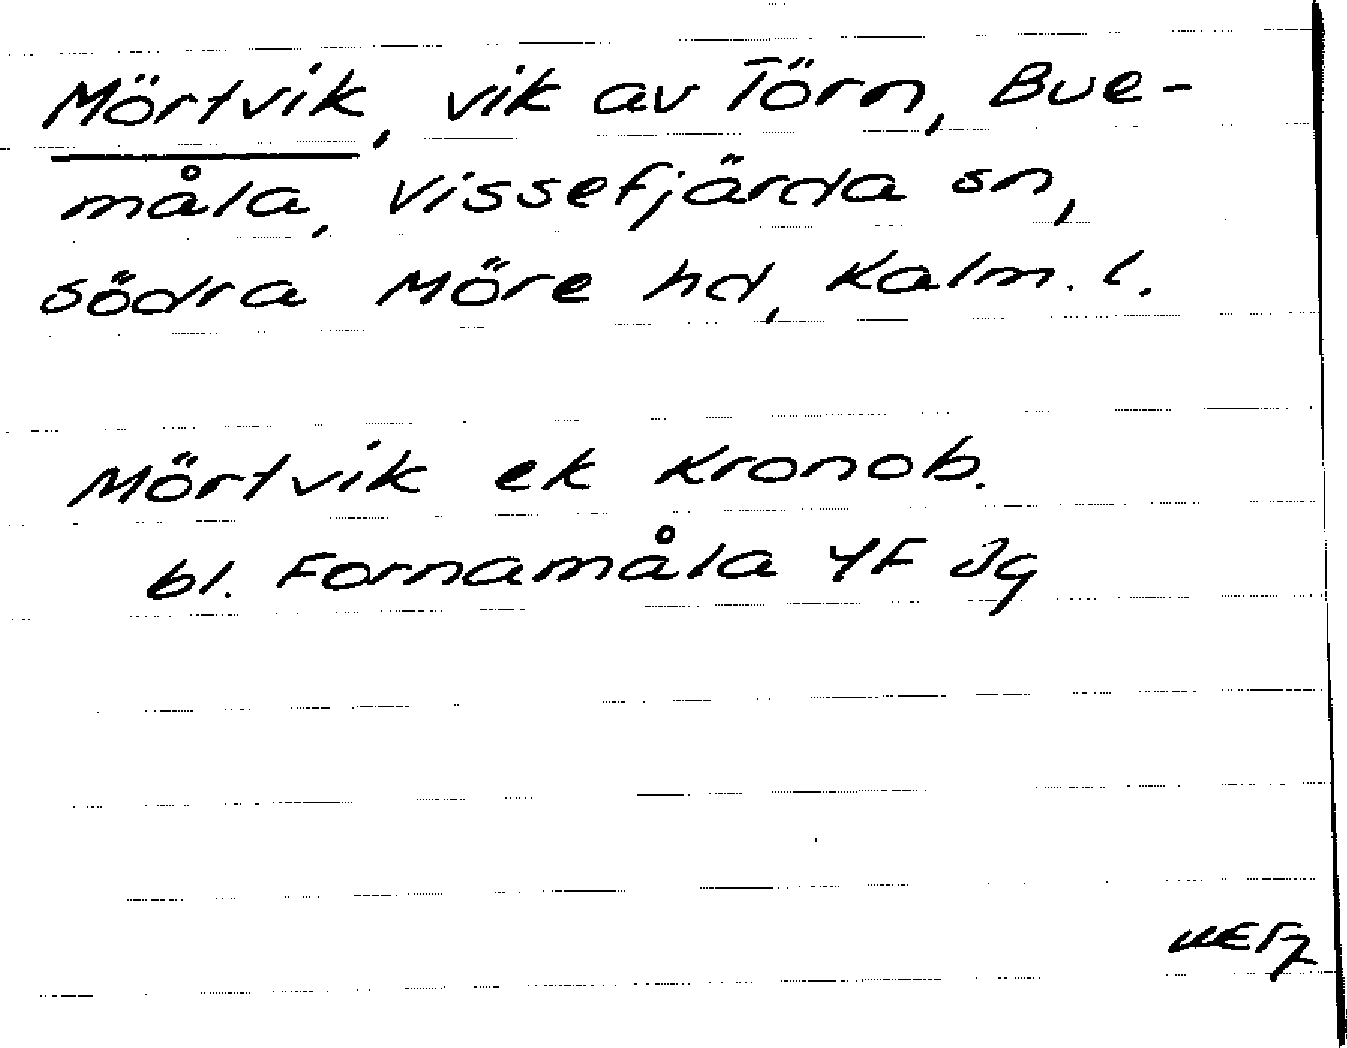 Mörtvik, vik av Törn, Bue-
måla, Vissefjärda sn,
södra Möre hd, Kalm. l.
Mörtvik ek Kronob.
bl. Fornamåla 4F Jg